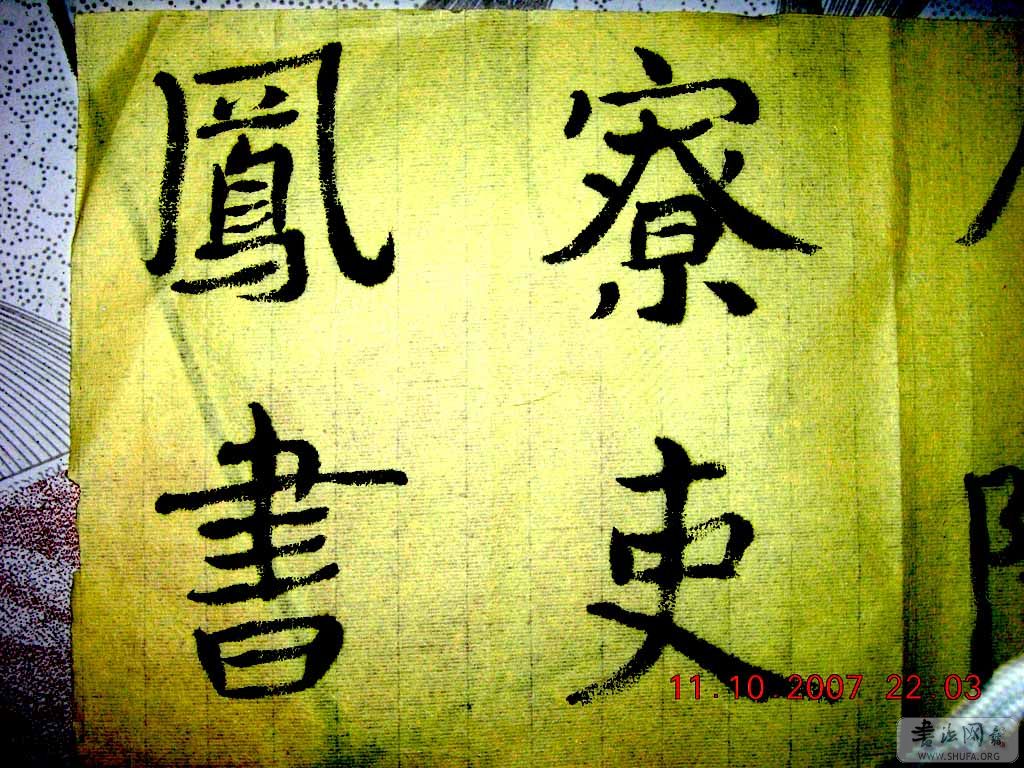 寮吏
鳳書
11.10.2007 22 03
书法网
WWW.SHUFA.ORG